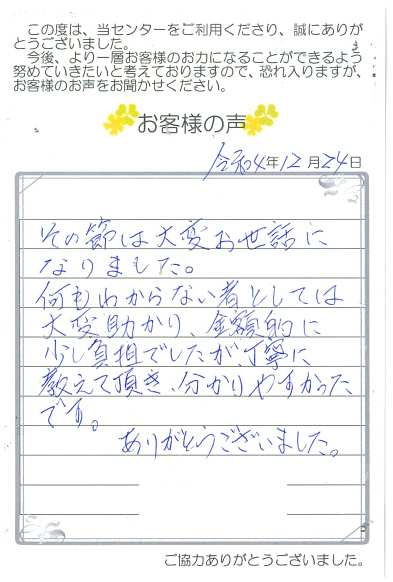 この度は、当センターをご利用くださり、誠にありが
とうございました。
今後、より一層お客様のお力になることができるよう
努めていきたいと考えておりますので、恐れ入りますが、
お客様のお声をお聞かせください。
お客様の声
令和4年12月24日
その節は大変お世話に
なりました。
何もわからない者としては
大変助かり、金額的に
少し負担でしたが、丁寧に
教えて頂き、分かりやすかった
です。
ありがとうございました。
ご協力ありがとうございました。